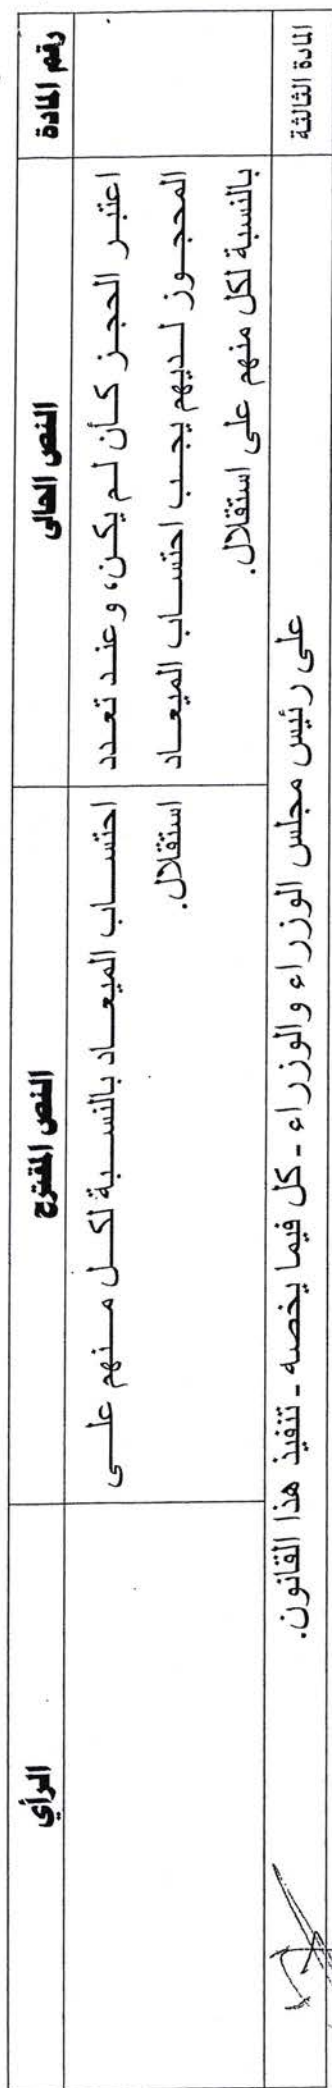 رقم المادة
النص الحالى
النص المقترح
الرأي
اعتبر الحجز كأن لم يكن، وعند تعدد
المحجوز لديهم يجب احتساب الميعاد
بالنسبة لكل منهم على استقلال.
احتساب الميعاد بالنسبة لكل منهم على
استقلال.
المادة الثالثة
على رئيس مجلس الوزراء والوزراء - كل فيما يخصه - تنفيذ هذا القانون.